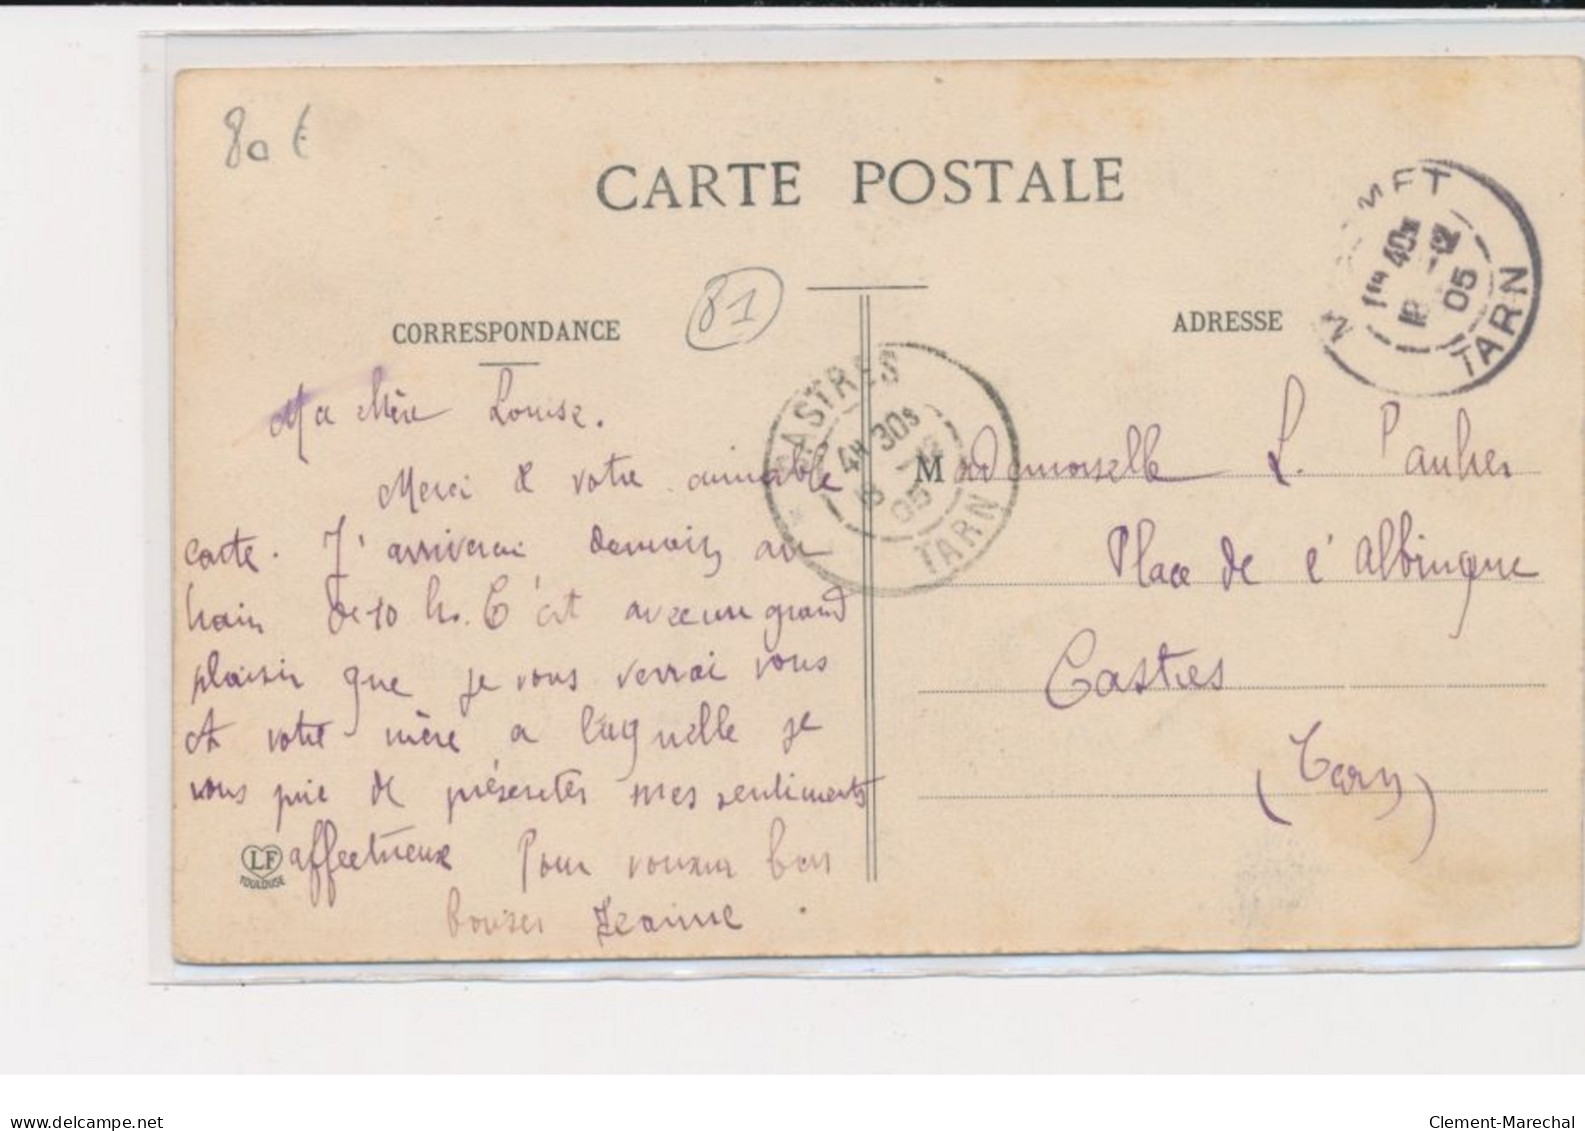 80 €
CARTE POSTALE
81
CORRESPONDANCE
ADRESSE
CASTRES
4H 30S
12
05
TARN
1M 40S
12
05
TARN
Ma chère Louise.
Merci de votre aimable
carte. J'arriverai demain au
train de 10 h. C'est avec un grand
plaisir que je vous verrai vous
et votre mère a laquelle je
vous prie de présenter mes sentiments
affectueux Pour vous un bon
baiser Jeanne.
LF
TOULOUSE
Mademoiselle L.
Place de l'Albinque
Castres
(Tarn)
delcampe.net
Clement-Marechal